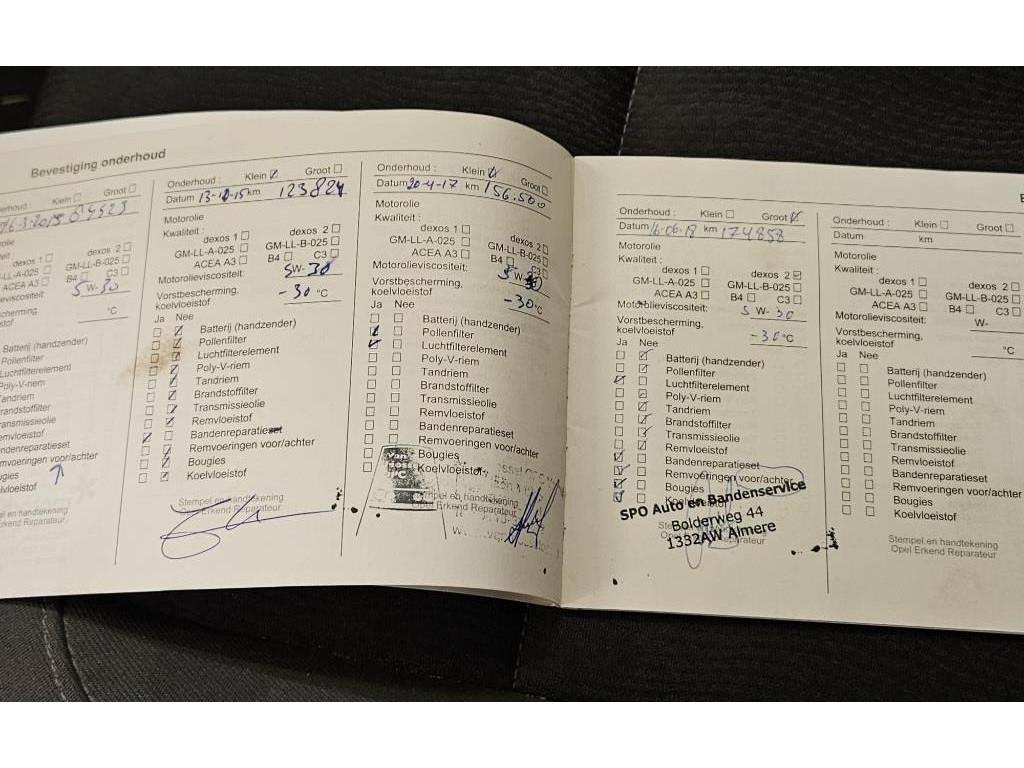 Bevestiging onderhoud
Klein Groot
GM-LL-A-025
dexos 2
GM-LL-B-025
ACEA A3 B4 C3
5 W-30
°C
Batterij (handzender)
Pollenfilter
Luchtfilterelement
Poly-V-riem
Tandriem
Brandstoffilter
Remvoeringen voor/achter
Onderhoud : Klein Groot
Datum 13-10-15 km 123824
Motorolie
Kwaliteit :
dexos 1 dexos 2
GM-LL-A-025 GM-LL-B-025
ACEA A3 B4 C3
Motorolieviscositeit: 5 W-30
Vorstbescherming,
koelvloeistof -30 °C
Ja Nee
Batterij (handzender)
Pollenfilter
Luchtfilterelement
Poly-V-riem
Tandriem
Brandstoffilter
Transmissieolie
Remvloeistof
Bandenreparatieset
Remvoeringen voor/achter
Bougies
Koelvloeistof
Stempel en handtekening
Opel Erkend Reparateur
Onderhoud : Klein Groot
Datum 20-4-17 km 156.500
Motorolie
Kwaliteit :
dexos 1 dexos 2
GM-LL-A-025 GM-LL-B-025
ACEA A3 B4 C3
Motorolieviscositeit: 5 W-30
Vorstbescherming,
koelvloeistof -30 °C
Ja Nee
Batterij (handzender)
Pollenfilter
Luchtfilterelement
Poly-V-riem
Tandriem
Brandstoffilter
Transmissieolie
Remvloeistof
Bandenreparatieset
Remvoeringen voor/achter
Bougies
Koelvloeistof
Onderhoud : Klein Groot
Datum 16-06-18 km 174858
Motorolie
Kwaliteit :
dexos 1 dexos 2
GM-LL-A-025 GM-LL-B-025
ACEA A3 B4 C3
Motorolieviscositeit: 5 W-30
Vorstbescherming,
koelvloeistof -30°C
Ja Nee
Batterij (handzender)
Pollenfilter
Luchtfilterelement
Poly-V-riem
Tandriem
Brandstoffilter
Transmissieolie
Remvloeistof
Bandenreparatieset
Remvoeringen voor/achter
Bougies
Koelvloeistof
SPO Auto en Bandenservice
Bolderweg 44
1332AW Almere
Onderhoud : Klein Groot
Datum km
Motorolie
Kwaliteit :
dexos 1 dexos 2
GM-LL-A-025 GM-LL-B-025
ACEA A3 B4 C3
Motorolieviscositeit: W-
Vorstbescherming,
koelvloeistof °C
Ja Nee
Batterij (handzender)
Pollenfilter
Luchtfilterelement
Poly-V-riem
Tandriem
Brandstoffilter
Transmissieolie
Remvloeistof
Bandenreparatieset
Remvoeringen voor/achter
Bougies
Koelvloeistof
Stempel en handtekening
Opel Erkend Reparateur